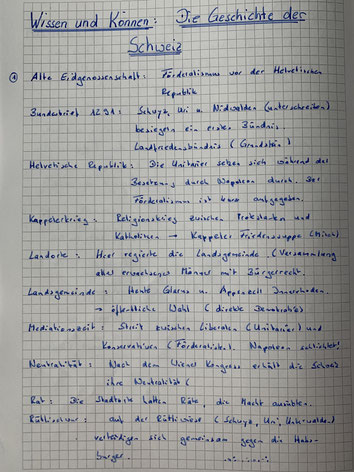 Wissen und Können: Die Geschichte der
Schweiz
① Alte Eidgenossenschaft: Förderalismus vor der Helvetischen
Republik
Bundesbrief 1291: Schwyz, Uri u. Nidwalden (unterschreiben)
besiegeln ein erstes Bündnis.
Landfriedensbündnis (Grundstein)
Helvetische Republik: Die Unitarier setzen sich während der
Besetzung durch Napoleon durch. Der
Förderalismus ist
Kappelerkrieg: Religionskrieg zwischen Protestanten und
Katholiken → Kappeler Friedenssuppe (Milch)
Landorte: Hier regierte die Landsgemeinde. (Versammlung
aller erwachsenen Männer mit Bürgerrecht.
Landsgemeinde: Heute Glarus u. Appenzell Innerrhoden.
→ öffentliche Wahl (direkte Demokratie)
Mediationszeit: Streit zwischen Liberalen (Unitarier) und
Konservativen (Förderalisten). Napoleon schlichtet!
Neutralität: Nach dem Wiener Kongress erhält die Schweiz
ihre Neutralität (
Rat: Die Stadtorte hatten Räte, die Macht ausüben.
Rütlischwur: auf der Rütliwiese (Schwyz, Uri, Unterwalde.)
verteidigen sich gemeinsam gegen die Habs-
burger.